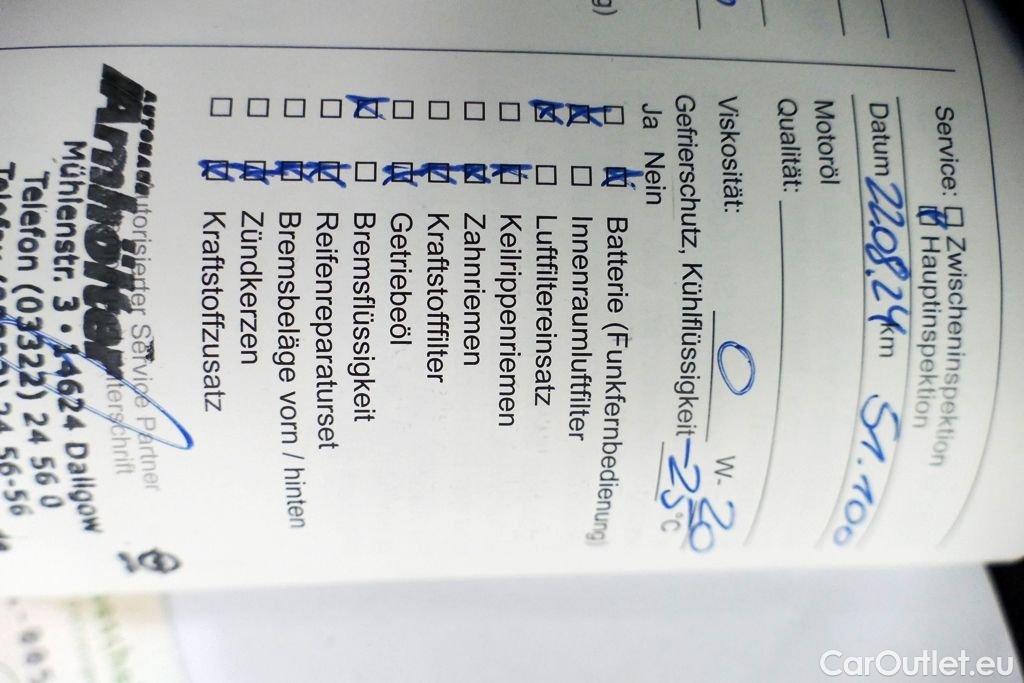 Service: Zwischeninspektion
Hauptinspektion
Datum 22.08.24 km 51.100
Motoröl
Qualität:
Viskosität: 0 W- 20
Gefrierschutz, Kühlflüssigkeit -25 °C
Ja Nein
Batterie (Funkfernbedienung)
Innenraumluftfilter
Luftfiltereinsatz
Keilrippenriemen
Zahnriemen
Kraftstofffilter
Getriebeöl
Bremsflüssigkeit
Reifenreparaturset
Bremsbeläge vorn / hinten
Zündkerzen
Kraftstoffzusatz
Autorisierter Service Partner
Mühlenstr. 3 • 14624 Dallgow
Telefon (03322) 24 56 0
24 56-56
CarOutlet.eu